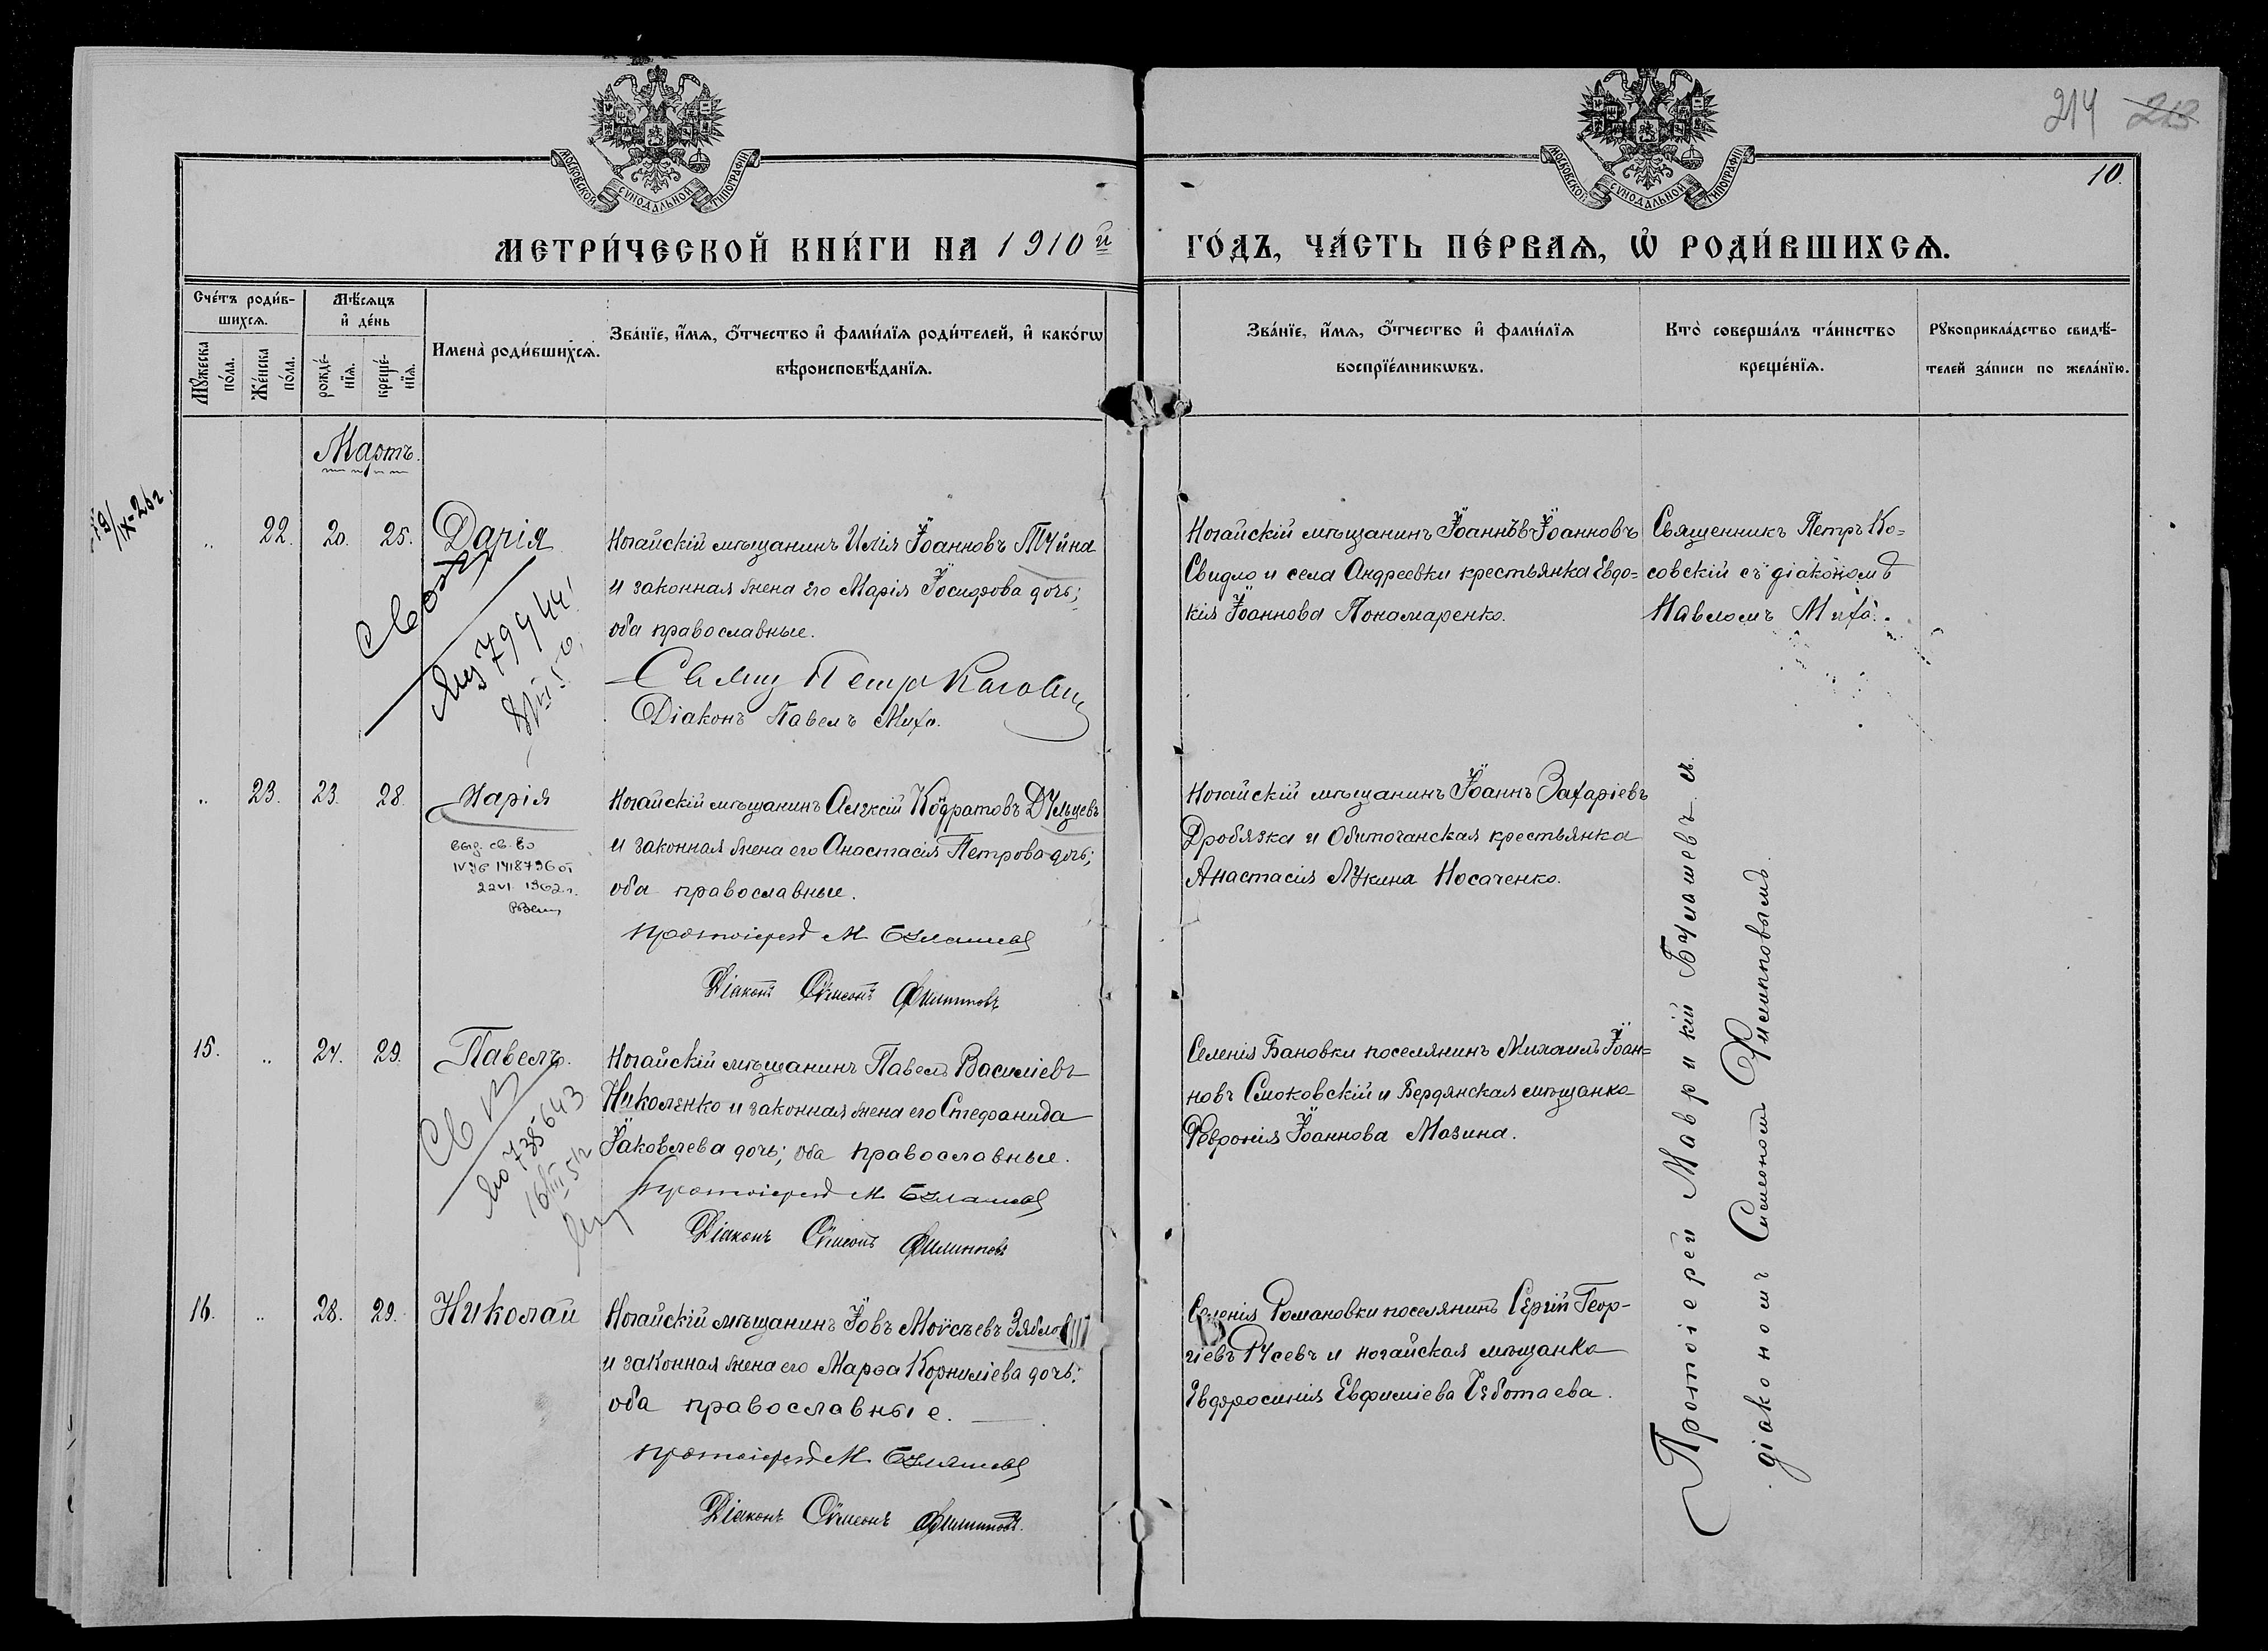 214 213
10.
МОСКОВСКОЙ СУНОДАЛЬНОЙ ТИПОГРАФІИ
МОСКОВСКОЙ СУНОДАЛЬНОЙ ТИПОГРАФІИ
МЕТРИ́ЧЕСКОЙ КНИ́ГИ НА 1910й
ГО́ДЪ, ЧА́СТЬ ПЕ́РВАѦ, Ѽ РОДИ́ВШИХСѦ.
Сче́тъ роди́в-
шихсѧ.
Мꙋ́жеска по́ла.
Же́нска по́ла.
Мѣ́сѧцъ
и҆ де́нь
рожде́-
нїѧ.
креще́-
нїѧ.
Имена̀ роди́вшихсѧ.
Зва́нїе, и҆́мѧ, ѻ҆́тчество и҆ фами́лїѧ роди́телей, и҆ како́гѡ
вѣроисповѣ́данїѧ.
Зва́нїе, и҆́мѧ, ѻ҆́тчество и҆ фами́лїѧ
воспрїе́мникѡвъ.
Кто̀ соверша́лъ та́инство
креще́нїѧ.
Рꙋкоприкла́дство свидѣ́-
телей за́писи по жела́нїю.
Мартъ.
19/IX-26г.
„ 22. 20. 25. Дарія
Ногайскій мѣщанинъ Илія Іоанновъ Тꙋйна
и законная жена его Марія Іосифова дочь;
оба православные.
Діаконъ Павелъ Михо.
Ногайскій мѣщанинъ Іоаннъ Іоанновъ
Свидло и села Андреевки крестьянка Евдо=
кія Іоаннова Понамаренко.
Священникъ Петръ Ко=
совскій съ діакономъ
Павломъ Михо.
„ 23. 23. 28. Марія
выд. св. во
1962 г.
Ногайскій мѣщанинъ Алексій Кодратовъ Дꙋльцевъ
и законная жена его Анастасія Петрова дочь;
оба православные.
протоіерей М Бꙋлашевъ
Діаконъ Сѵмеонъ Филипповъ
Ногайскій мѣщанинъ Іоаннъ Захаріевъ
Дробязка и Обиточанская крестьянка
Анастасія Лꙋкина Носаченко.
Протоіерей Маврикій Бꙋлашевъ съ
діакономъ Симеономъ Филипповымъ.
15. „ 24. 29. Павелъ.
Ногайскій мѣщанинъ Павелъ Василіевъ
Николенко и законная жена его Стефанида
Іаковлева дочь; оба православные.
протоіерей М Бꙋлашевъ
Діаконъ Сѵмеонъ Филипповъ
Селенія Бановки поселянинъ Михаилъ Іоан=
новъ Смоковскій и Бердянская мѣщанка
Февронія Іоаннова Мазина.
16. „ 28. 29. Николай
Ногайскій мѣщанинъ Іовъ Моѵсѣевъ Зяблов
и законная жена его Марѳа Корниліева дочь;
оба православные.
протоіерей М. Бꙋлашевъ
Діаконъ Сѵмеонъ Филипповъ.
Селенія Романовки поселянинъ Сергій Геор-
гіевъ Рꙋсевъ и ногайская мѣщанка
Евфросинія Евфиміева Чеботаева.